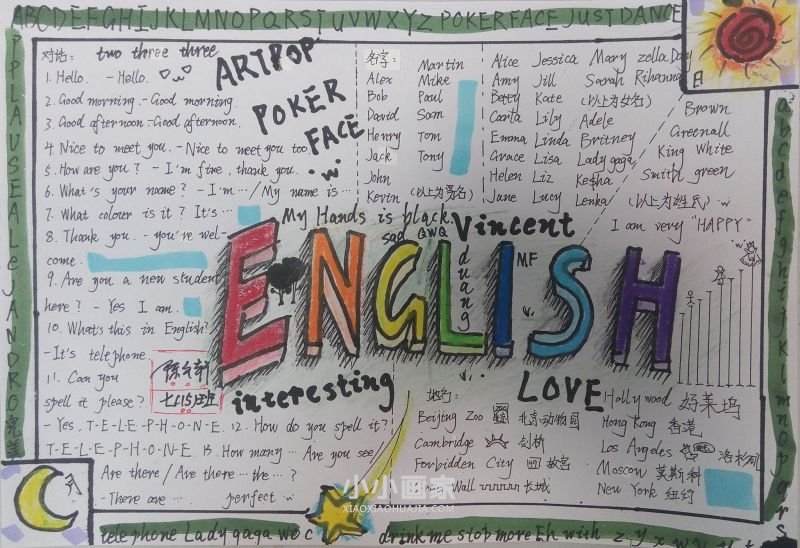 ABCDEFGHIJKLMNOPQRSTUVWXYZ POKERFACE JUST DANCE
PPLAUSEALEJANDRO
对话:
two three three
1. Hello. - Hello.
2. Good morning. - Good morning.
3. Good afternoon. - Good afternoon.
4. Nice to meet you. - Nice to meet you too.
5. How are you? - I'm fine, thank you.
6. What's your name? - I'm ··· / My name is ···
7. What colour is it? It's ···
8. Thank you. - you're wel-
come.
9. Are you a new student
here? - Yes I am.
10. What's this in English?
- It's telephone
11. Can you
spell it please?
- Yes, T-E-L-E-P-H-O-N-E. 12. How do you spell it?
T-E-L-E-P-H-O-N-E. 13. How many ··· Are you see
Are there / Are there ··· the ··· ?
- There are ··· perfect
七(15)班
ARTPOP
POKER
FACE
名字:
Alex
Bob
David
Henry
Jack
John
Kevin
Martin
Mike
Paul
Sam
Tom
Tony
(以上为男名)
Alice Jessica Mary zolla Day
Amy Jill Sarah Rihanna
Betty Kate (以上为女名)
Carla Lily Adele
Emma Linda Britney
Grace Lisa Lady gaga
Helen Liz Ke$ha
Jane Lucy Lenka
日
Brown
Greenall
King White
Smith green
(以上为姓氏)
I am very "HAPPY"
My Hands is black
sad QWQ
Vincent
duang
MF
ENGLISH
interesting
LOVE
地名:
Beijing Zoo 北京动物园
Cambridge 剑桥
Forbidden City 故宫
Wall 长城
Hollywood 好莱坞
Hong Kong 香港
Los Angeles 洛杉矶
Moscow 莫斯科
New York 纽约
小小画家
XIAOXIAOHUAJIA.COM
abcdefghijklmnopqrs
telephone Lady gaga wo c drink me stop more Eh with z y x w v u t